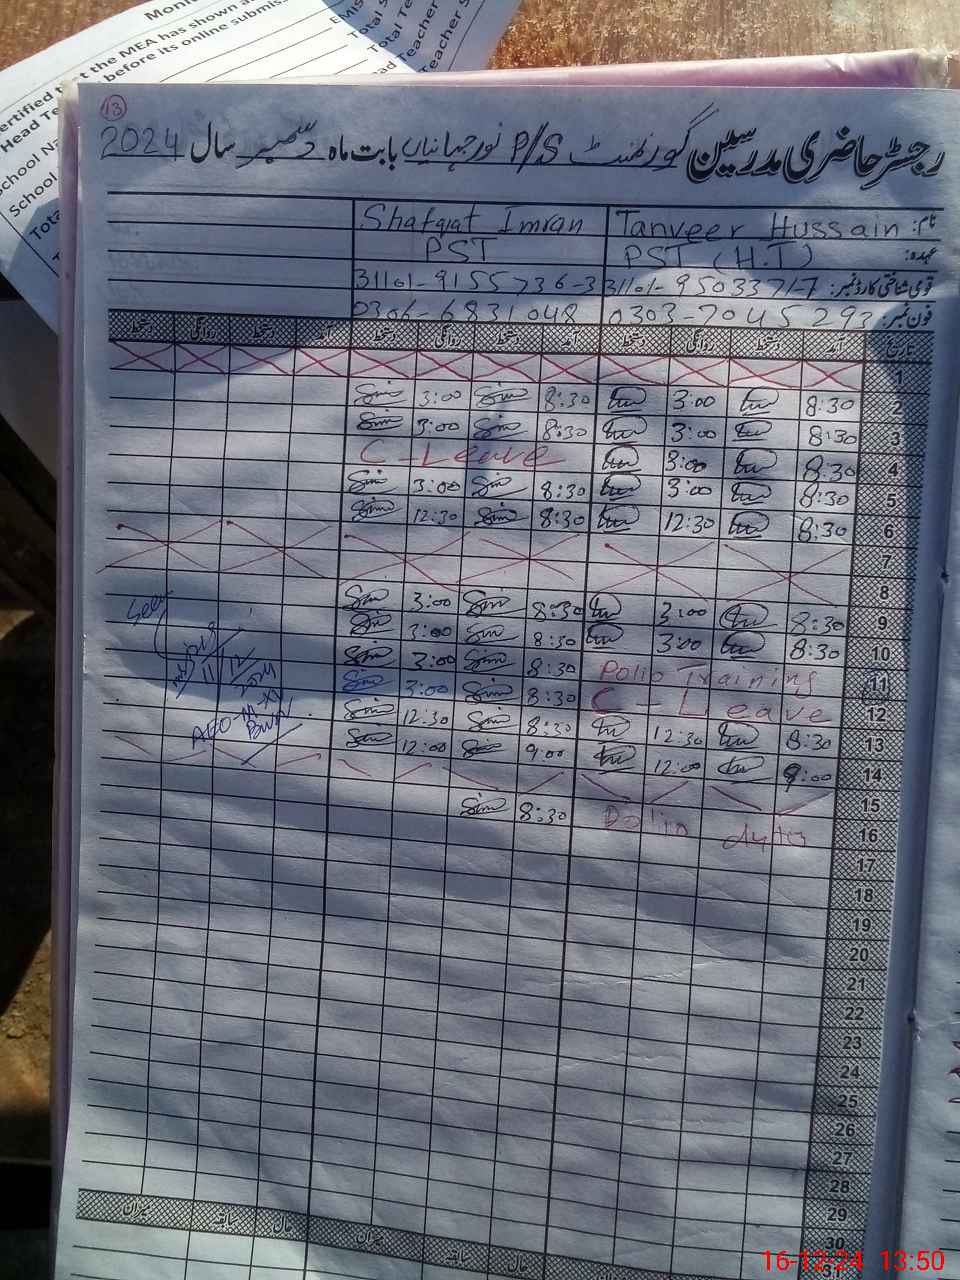 Mont
ertified t the MEA has shown a
Head Te before its online submis
School Na
School
Tota
EMIS
Total S
Total Te
ad Teacher
Teacher S
13
رجسٹر حاضری مدرسین گورنمنٹ P/S نور جہانیاں بابت ماہ دسمبر سال 2024
نام: Tanveer Hussain Shafqat Imran
عہدہ: PST (H.T) PST
قومی شناختی کارڈ نمبر: 31101-95033717 31101-9155736-3
فون نمبر: 0303-7045293 0306-6831048
تاریخ آمد دستخط روانگی دستخط آمد دستخط روانگی دستخط آمد دستخط روانگی دستخط
1
2 8:30 3:00 8:30 3:00
3 8:30 3:00 8:30 3:00
4 8:30 3:00 C-Leave
5 8:30 3:00 8:30 3:00
6 8:30 12:30 8:30 12:30
7
8
9 8:30 3:00 8:30 3:00
10 8:30 3:00 8:30 3:00
11 Polio Training 8:30 3:00
12 C-Leave 8:30 3:00
13 8:30 12:30 8:30 12:30
14 9:00 12:00 9:00 12:00
15
16 Polio duty 8:30
Seen
11/12/2024
AEO-M-XV
BWN
17
18
19
20
21
22
23
24
25
26
27
28
29
30
31
میزان سابقہ حال میزان سابقہ حال میزان
16-12-24 13:50